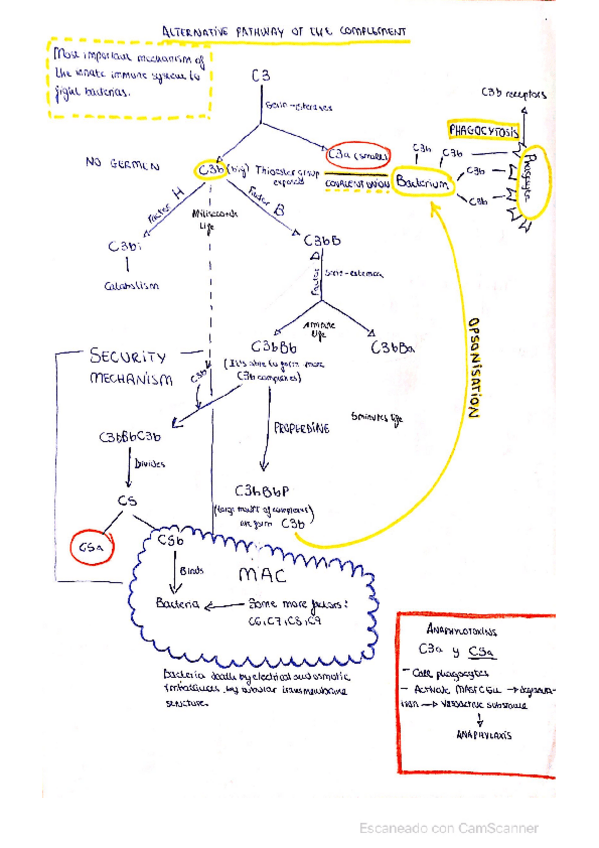 ALTERNATIVE PATHWAY OF THE COMPLEMENT
Most important mechanism of
the innate immune system to
fight bacterias.
C3
C3b receptors
PHAGOCYTOSIS
C3a (smaller)
C3b
C3b
C3b
C3b
Bacterium
Phagocyte
NO GERMEN
C3b (big) Thioester group
exposed
COVALENT UNION
Factor H
Miliseconds
life
Factor B
C3bi
Catabolism
C3bB
Factor
4 minute
life
C3bBb
C3bBa
(It's able to form more
C3b complexes)
OPSONISATION
SECURITY
MECHANISM
C3b
5 minutes life
PROPERDINE
C3bBbC3b
Divides
C5
C5a
C5b
C3bBbP
(large amount of complexes
are form C3b)
Binds
MAC
Bacteria
Some more factors:
C6, C7, C8, C9
Bacteria death by electrical and osmotic
imbalances by tubular transmembrane
structure.
ANAPHYLOTOXINS
C3a y C5a
- Call phagocytes
- Activate MAST CELL → degranula-
tion → vasoactive substance
ANAPHYLAXIS
Escaneado con CamScanner